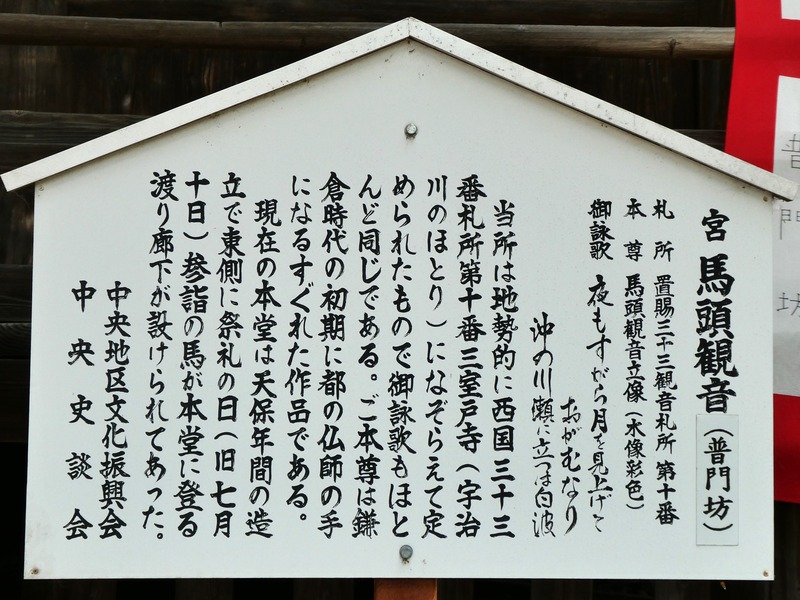 宮 馬頭観音（普門坊）
札所 置賜三十三観音札所 第十番
本尊 馬頭観音立像（木像彩色）
御詠歌 夜もすがら月を見上げて
おがむなり
沖の川瀬に立つは白波
当所は地勢的に西国三十三
番札所第十番三室戸寺（宇治
川のほとり）になぞらえて定
められたもので御詠歌もほと
んど同じである。ご本尊は鎌
倉時代の初期に都の仏師の手
になるすぐれた作品である。
現在の本堂は天保年間の造
立で東側に祭礼の日（旧七月
十日）参詣の馬が本堂に登る
渡り廊下が設けられてあった。
中央地区文化振興会
中央史談会
普門坊